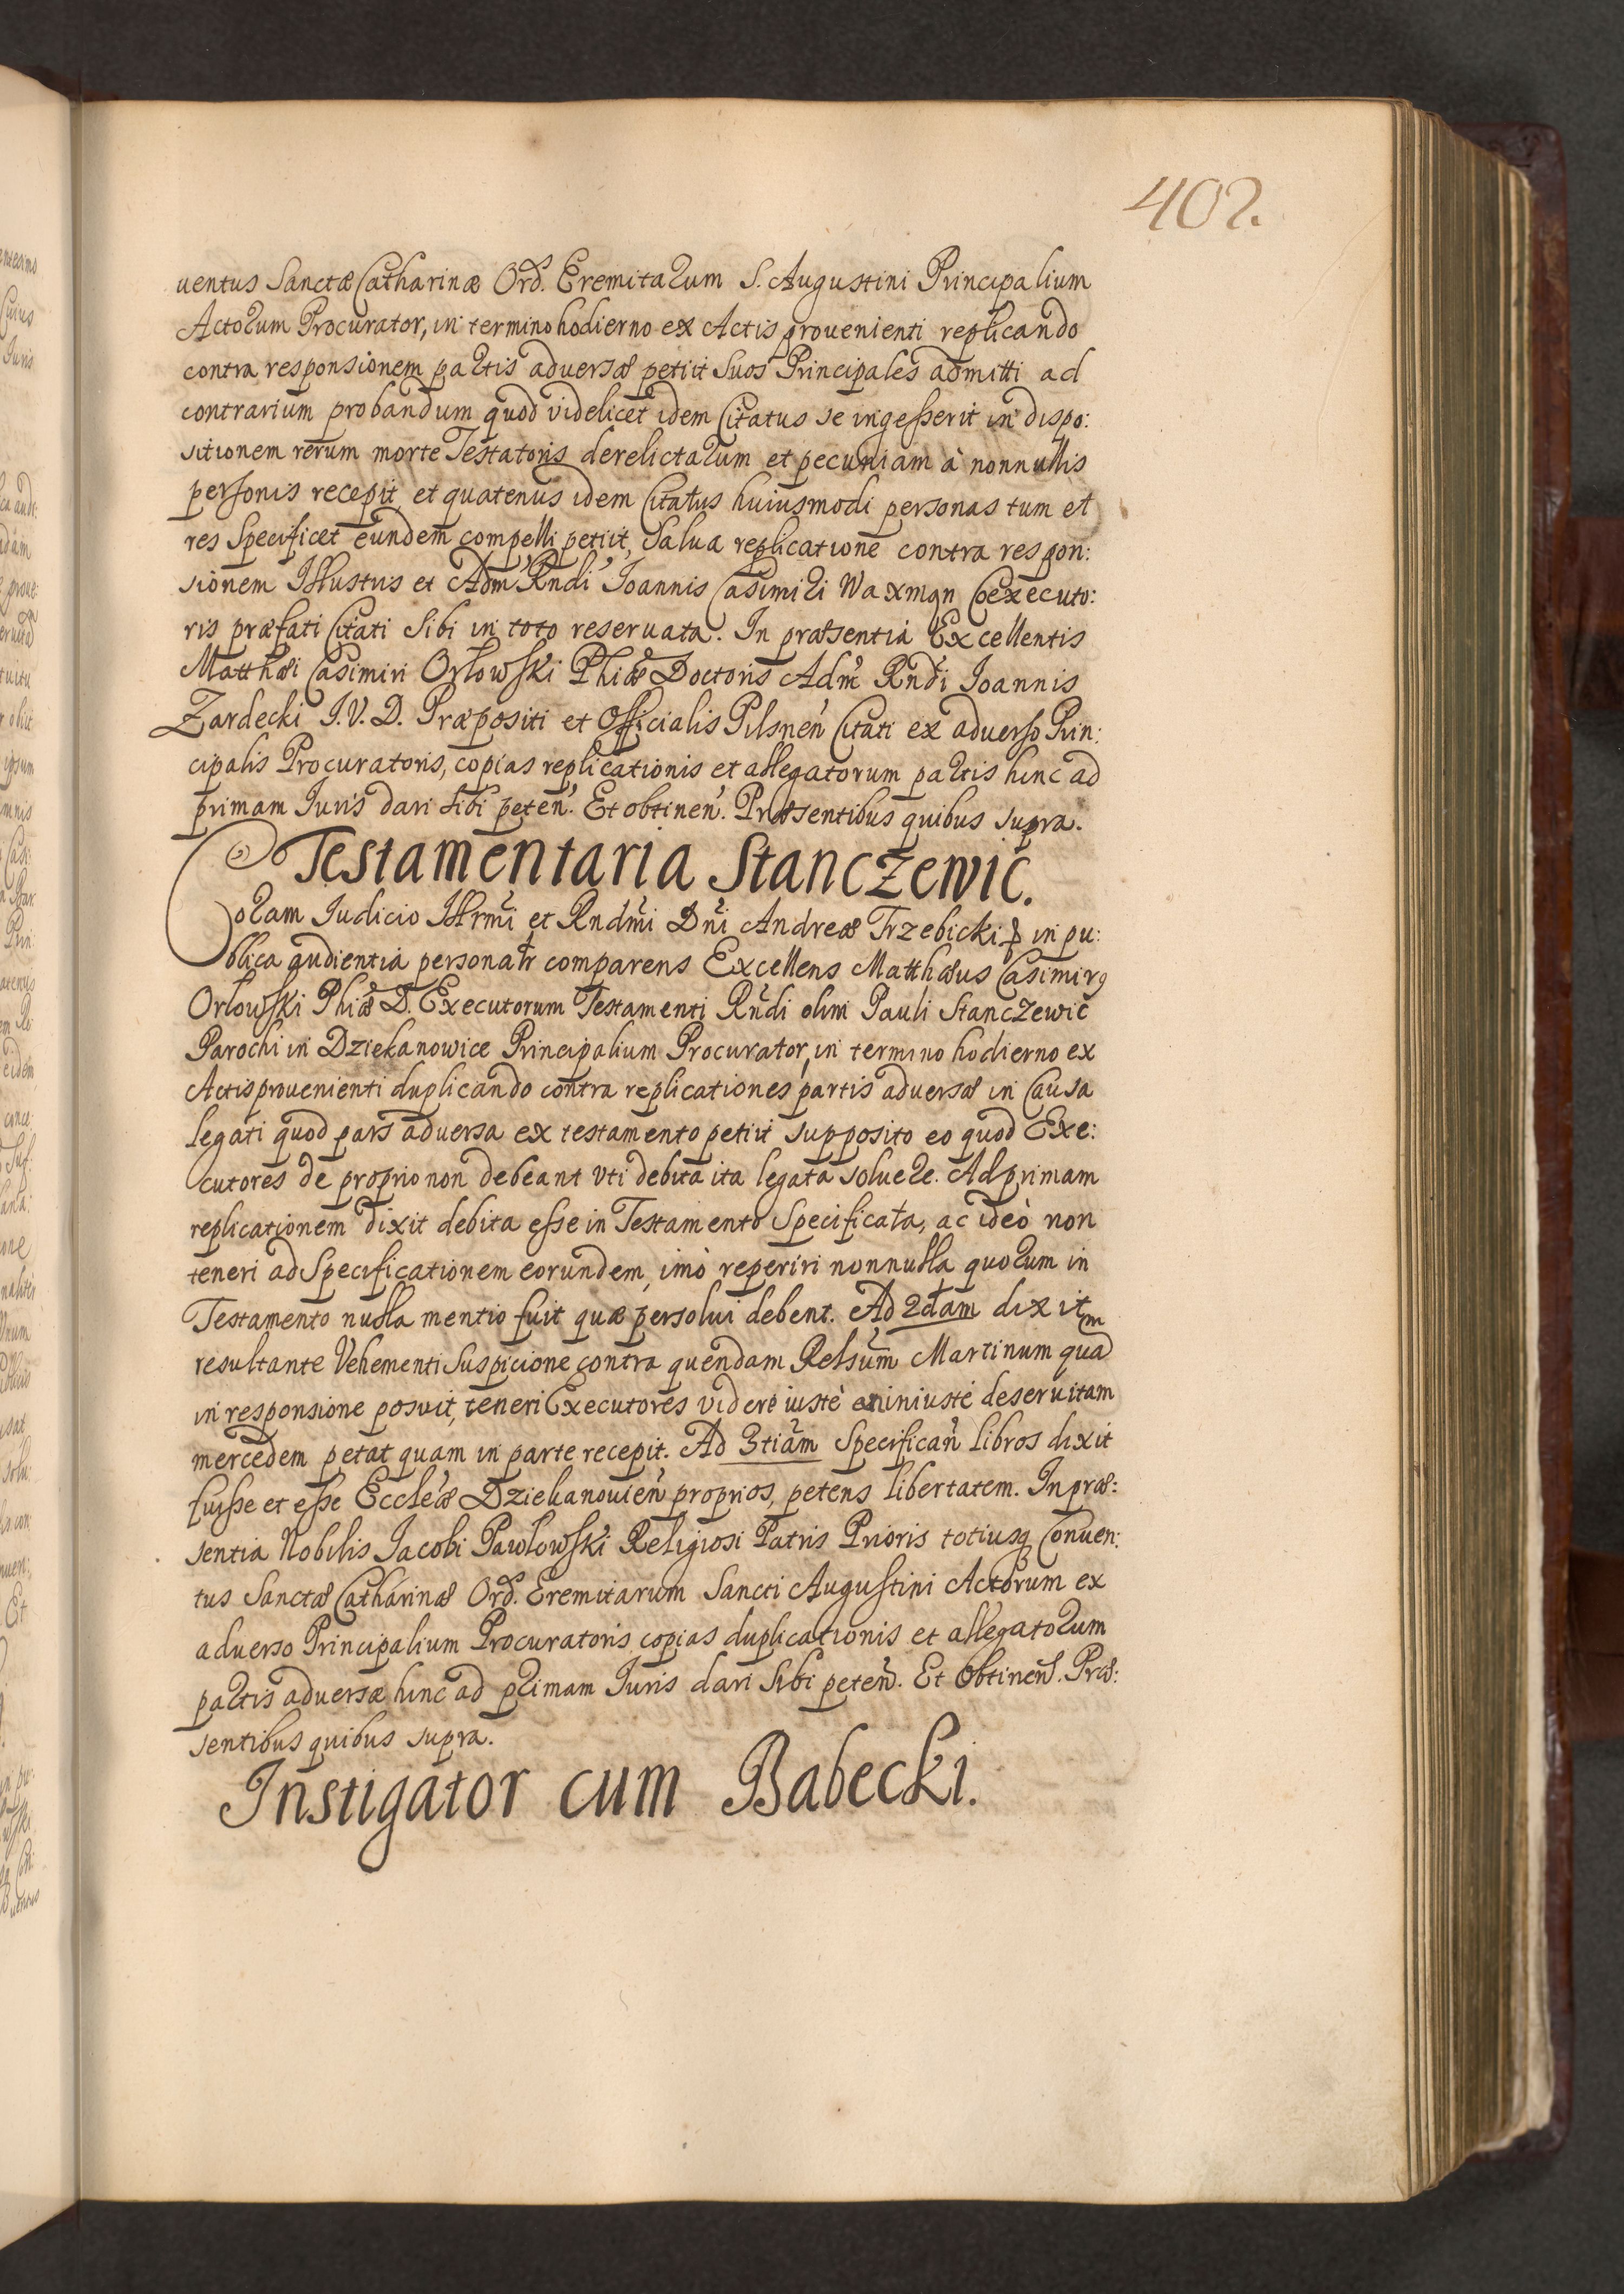 402.
uentus Sanctæ Catharinæ Ord. Eremitarum S. Augustini Principalium
Actorum Procurator, in termino hodierno ex Actis prouenienti replicando
contra responsionem partis aduersæ petiit Suos Principales admitti ad
contrarium probandum quod videlicet idem Citatus se ingesserit in dispo:
sitionem rerum morte Testatoris derelictarum et pecuniam à nonnullis
personis recepit, et quatenus idem Citatus huiusmodi personas tum et
res Specificet eundem compelli petiit, Salua replicatione contra respon:
sionem Illustris et Adm Rndi Ioannis Casimiri Waxman Coexecuto:
ris præfati Citati Sibi in toto reseruata. In præsentia Excellentis
Matthæi Casimiri Orłowski Phiæ Doctoris Adm Rndi Ioannis
Zardecki I.V.D. Præpositi et Officialis Pilsnen Citati ex aduerso Prin:
cipalis Procuratoris, copias replicationis et allegatorum partis hinc ad
primam Iuris dari sibi peten. Et obtinen. Præsentibus quibus supra.
Testamentaria Stanczewic.
Coram Iudicio Illrmi et Rndmi Dni Andreæ Trzebicki in pu:
blica audientia personatr comparens Excellens Matthæus Casimirꝯ
Orłowski Phiæ D. Executorum Testamenti Rndi olim Pauli Stanczewic
Parochi in Dziekanowice Principalium Procurator, in termino hodierno ex
Actis prouenienti duplicando contra replicationes partis aduersæ in Causa
legati quod pars aduersa ex testamento petiit supposito eo quod Exe:
cutores de proprio non debeant vti debita ita legata soluere. Ad primam
replicationem dixit debita esse in Testamento Specificata, ac ideò non
teneri ad Specificationem eorundem, imò reperiri nonnulla quorum in
Testamento nulla mentio fuit quæ persolui debent. Ad 2dam dixit
resultante Vehementi Suspicione contra quendam Relsum Martinum quam
in responsione posuit, teneri Executores videre iustè an iniustè deseruitam
mercedem petat quam in parte recepit. Ad 3tiam Specifican libros dixit
fuisse et esse Eccleæ Dziekanouien proprios, petens libertatem. In præ:
sentia Nobilis Iacobi Pawłowski Religiosi Patris Prioris totiusq Conuen:
tus Sanctæ Catharinæ Ord. Eremitarum Sancti Augustini Actorum ex
aduerso Principalium Procuratoris copias duplicationis et allegatorum
partis aduersæ hinc ad primam Iuris dari Sibi peten. Et Obtinen. Præ:
sentibus quibus supra.
Instigator cum Babecki.